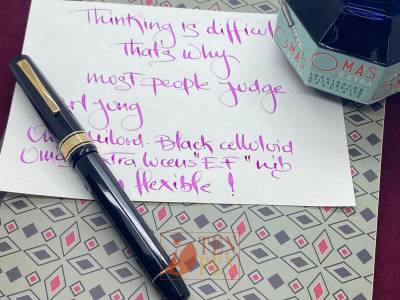 Thinking is difficul
that's why
most people judge.
rl Jung
Om milord - Black celluloid
Omas Extra lucens "EF" nib
flexible !
OMAS
EXTRA
OMAS